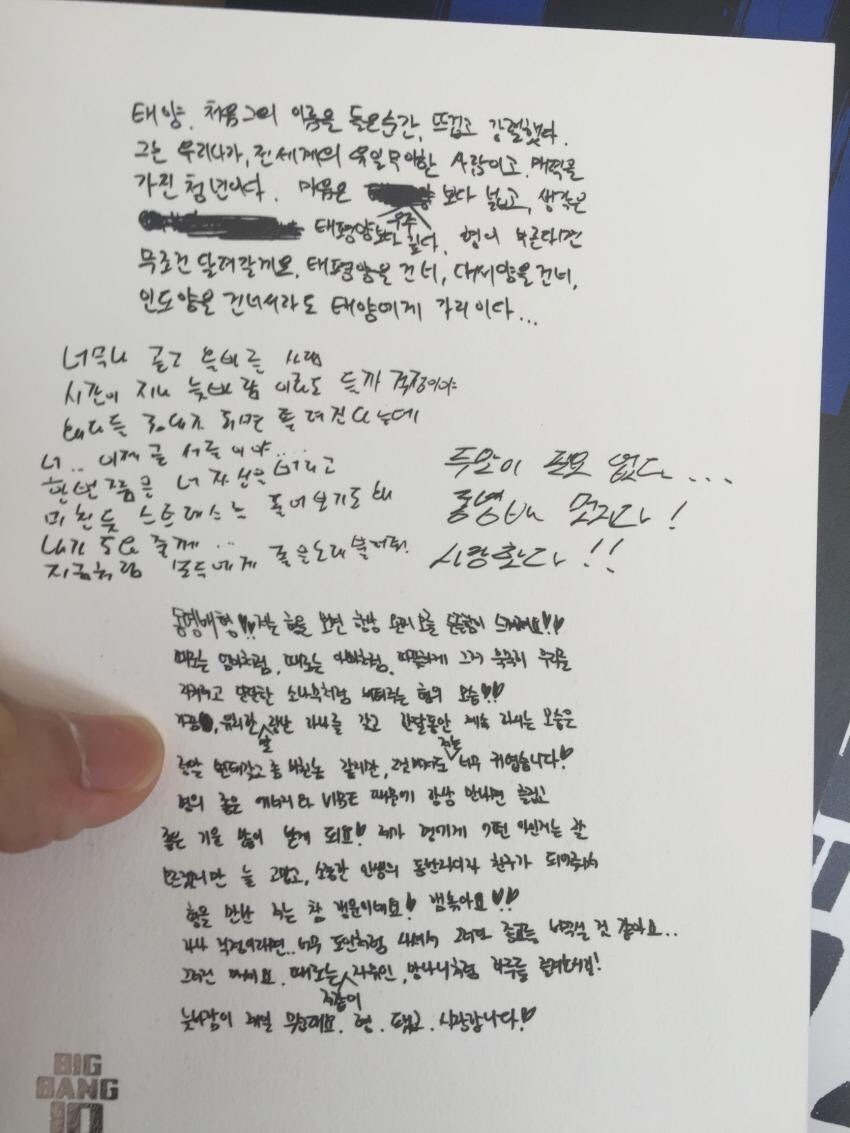 태양. 처음 그의 이름을 들은 순간, 뜨겁고 강렬했다.
그는 우리나라, 전 세계의 유일무이한 사람이고, 매력을
가진 청년이다. 마음은 보다 넓고, 생각은
태평양보다 깊다. 형이 부른다면
우주
무조건 달려갈께요. 태평양을 건너, 대서양을 건너,
인도양을 건너서라도 태양에게 가리이다...
너무나 곧고 올바른 사람
시간이 지나 늦바람 이라도 들까 걱정이야
배다른 되면 된다는데
너.. 이제 곧 서른이야....
한번쯤은 너 자신을 버리고
미친듯 스트레스도 풀어보기도 해
내가 도와 줄께...
지금처럼 모두에게 좋은노래 불러줘.
두말이 필요 없다...
동영배 멋지다!
사랑한다!!
동영배형♡♡ 저는 형을 보면 항상 든든함이 느껴져요♡♡
때로는 엄마처럼, 때로는 아빠처럼, 따뜻하게 그저 묵묵히 우리를
지켜주고 단단한 소나무처럼 버텨주는 형의 모습♡♡
가끔, 유리한 만 가사를 갖고 한달동안 계속 하시는 모습은
정말 변태같고 좀 미친놈 같지만, 그런 너무 귀엽습니다♡
형의 좋은 에너지와 VIBE 때문에 항상 만나면 즐겁고
좋은 기운 많이 받게 되요! 제가 형에게 어떤 아인지는 잘
모르겠지만 늘 고맙고, 소중한 인생의 동반자이자 친구가 되어주셔서
형을 만난 저는 참 행운이네요! 갬동이요♡♡
사사 걱정이라면.. 너무 도인처럼 사셔서 그러다 것 같아요..
그러진 마세요. 때로는 자유인, 망나니처럼 하루를
적당히
늦바람이 제일 무섭대요. 형. 땡큐. 사랑합니다!♡
BIG
BANG
10